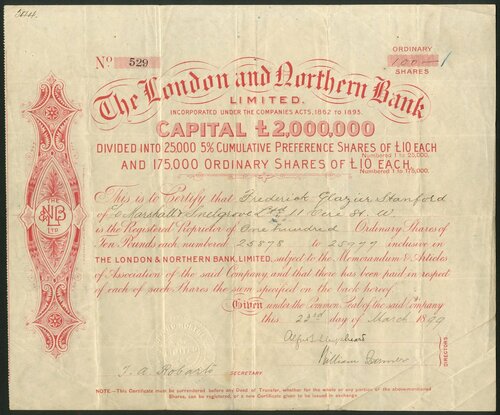 Nº 529
ORDINARY
100
SHARES
The London and Northern Bank
LIMITED.
INCORPORATED UNDER THE COMPANIES ACTS, 1862 TO 1895.
CAPITAL £2,000,000
DIVIDED INTO 25,000 5% CUMULATIVE PREFERENCE SHARES OF £10 EACH
Numbered 1 to 25,000.
AND 175,000 ORDINARY SHARES OF £10 EACH.
Numbered 1 to 175,000.
This is to Certify that Frederick Glazier Stanford
of Marshall & Snelgrove Ltd 11 Vere St. W.
is the Registered Proprietor of One hundred Ordinary Shares of
Ten Pounds each numbered 25878 to 25977 inclusive in
THE LONDON & NORTHERN BANK, LIMITED, subject to the Memorandum & Articles
of Association of the said Company and that there has been paid in respect
of each of such Shares the sum specified on the back hereof.
Given under the Common Seal of the said Company
this 22nd day of March 1899
THE
LNB
LTD
William
DIRECTORS
T. A. Roberts
SECRETARY
NOTE.—This Certificate must be surrendered before any Deed of Transfer, whether for the whole or any portion of the above-mentioned
Shares, can be registered, or a new Certificate given to be issued in exchange.